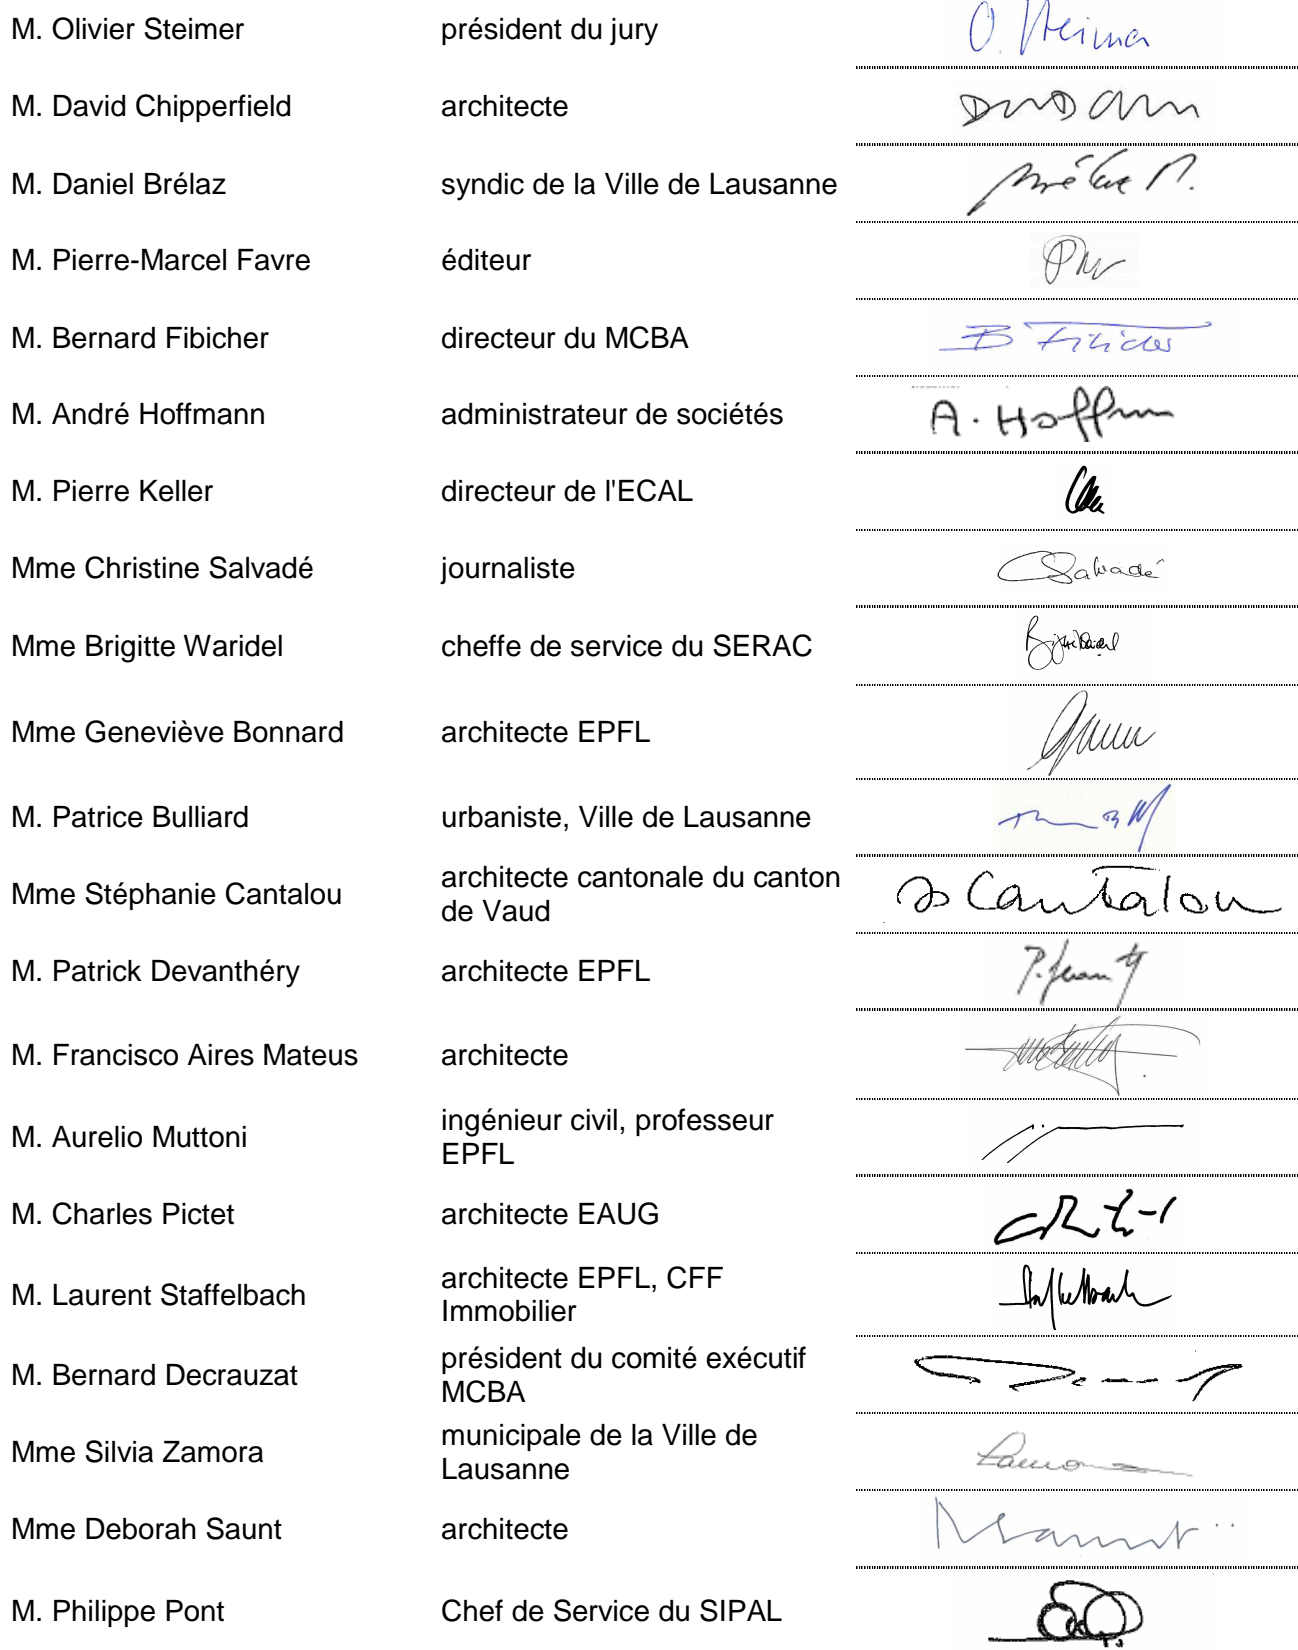 M. Olivier Steimer président du jury O. Steimer
M. David Chipperfield architecte
M. Daniel Brélaz syndic de la Ville de Lausanne
M. Pierre-Marcel Favre éditeur
M. Bernard Fibicher directeur du MCBA B Fibicher
M. André Hoffmann administrateur de sociétés A. Hoffmn
M. Pierre Keller directeur de l'ECAL
Mme Christine Salvadé journaliste CSalvadé
Mme Brigitte Waridel cheffe de service du SERAC
Mme Geneviève Bonnard architecte EPFL
M. Patrice Bulliard urbaniste, Ville de Lausanne
Mme Stéphanie Cantalou architecte cantonale du canton
de Vaud S Cantalou
M. Patrick Devanthéry architecte EPFL
M. Francisco Aires Mateus architecte
M. Aurelio Muttoni ingénieur civil, professeur
EPFL
M. Charles Pictet architecte EAUG
M. Laurent Staffelbach architecte EPFL, CFF
Immobilier
M. Bernard Decrauzat président du comité exécutif
MCBA
Mme Silvia Zamora municipale de la Ville de
Lausanne
Mme Deborah Saunt architecte
M. Philippe Pont Chef de Service du SIPAL